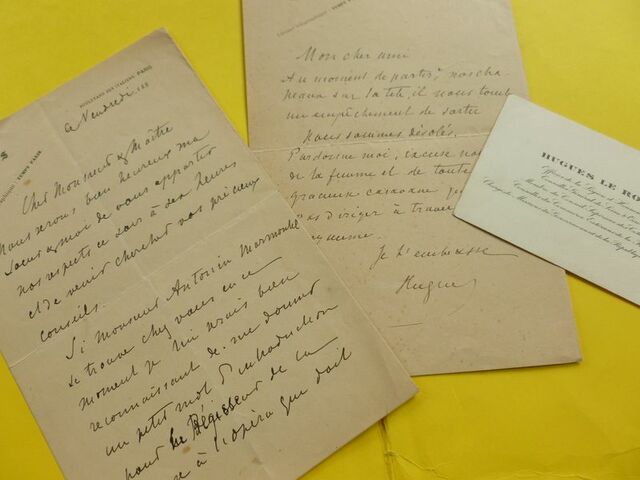 BOULEVARD DES ITALIENS, PARIS
TEMPS PARIS
Ce Vendredi 188
Cher Monsieur & Maître
Nous serons bien heureux ma
soeur & moi de vous apporter
nos respects ce soir à six heures
et de venir chercher vos précieux
conseils.
Si Monsieur Antonin Marmontel
se trouve chez vous en ce
moment je lui serais bien
reconnaissant de me donner
un petit mot d'introduction
pour le Régisseur de la
à l'opéra que doit
TEMPS PARIS
Mon cher ami
Au moment de partir, nos cha
peaux sur la tête, il nous tombe
un empêchement de sortir
Nous sommes désolés.
Pardonne moi, excuse nous
de ta femme et de toute
gracieuse
pas diriger à
Je t'embrasse
Hugues
HUGUES LE RO